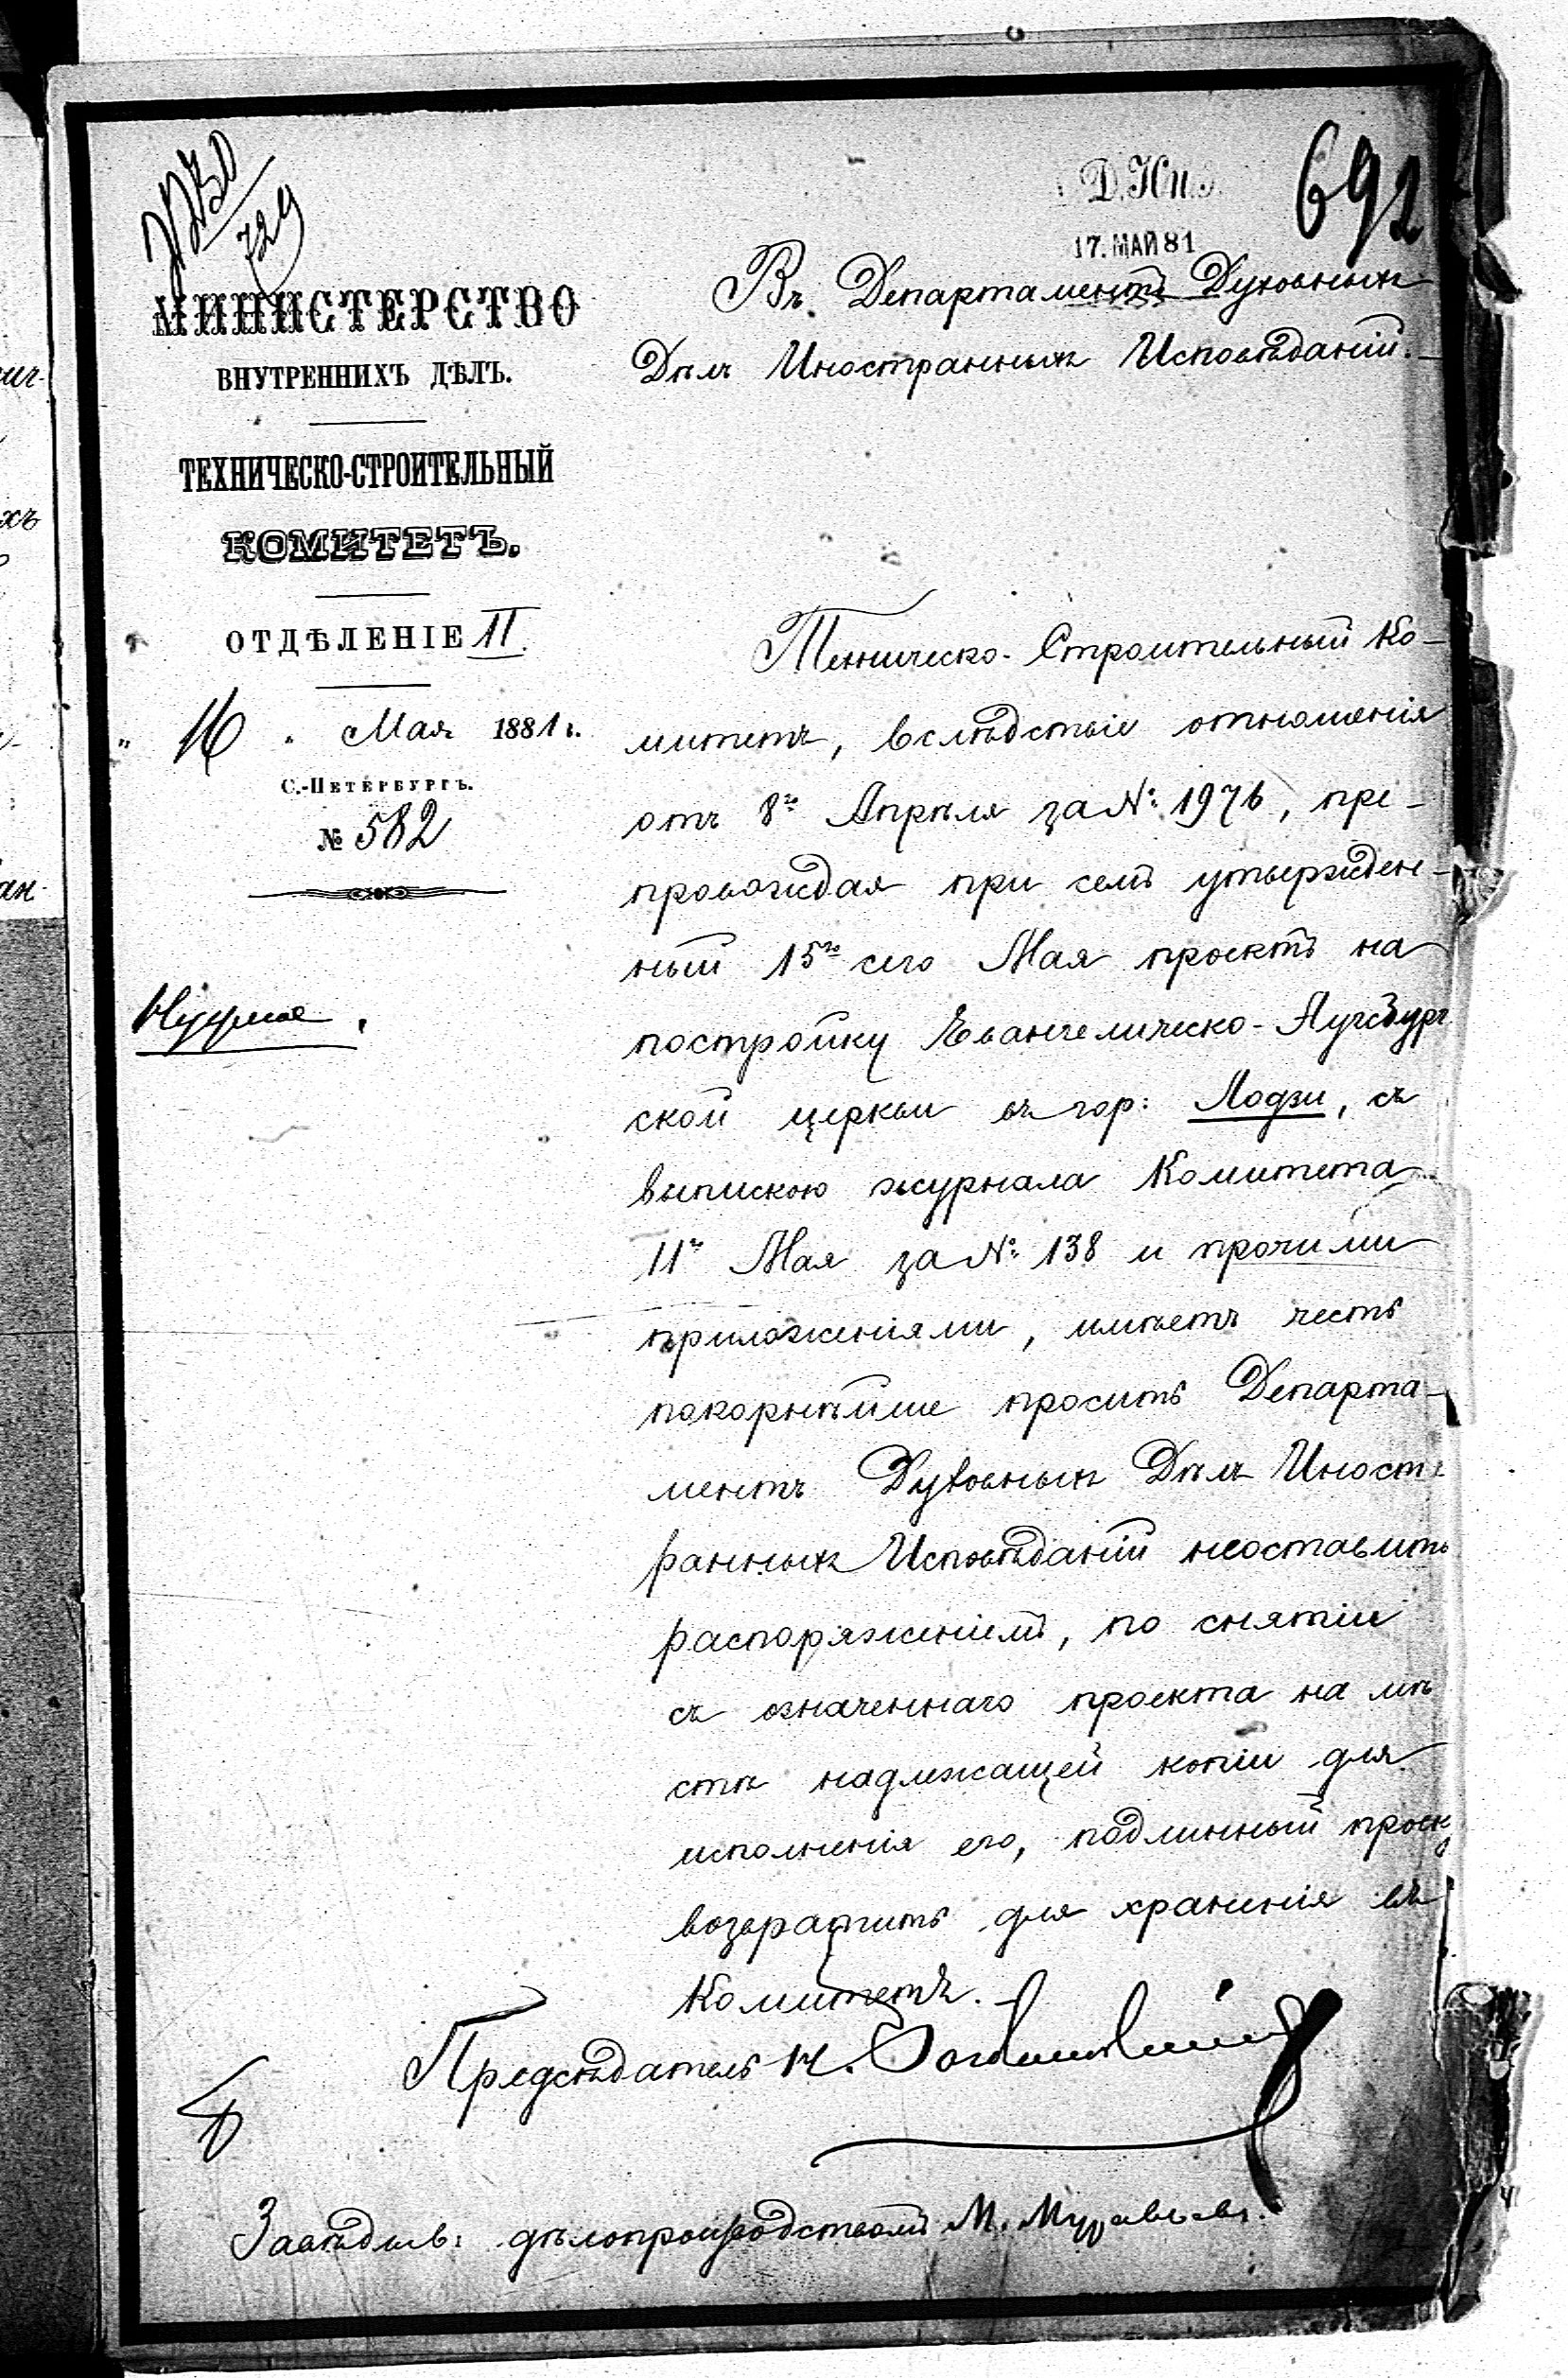 692
17. МАЙ 81
МИНИСТЕРСТВО
ВНУТРЕННИХЪ ДѢЛЪ.
ТЕХНИЧЕСКО-СТРОИТЕЛЬНЫЙ
КОМИТЕТЪ.
ОТДѢЛЕНІЕ II.
„ 16 „ Мая 1881 г.
С.-ПЕТЕРБУРГЪ.
№ 582
Въ Департаментъ Духовныхъ
Дѣлъ Иностранныхъ Исповѣданій.
Техническо-Строительный Ко-
митетъ, вслѣдствіе отношенія
отъ 8го Апрѣля за №: 1976, пре-
провождая при семъ утвержден-
ный 15го сего Мая проектъ на
постройку Евангелическо-Аугсбург
ской церкви въ гор: Лодзи, съ
выпискою журнала Комитета
11го Мая за №: 138 и прочими
приложеніями, имѣетъ честь
покорнѣйше просить Департа-
ментъ Духовныхъ Дѣлъ Иност-
ранныхъ Исповѣданій неоставить
распоряженіемъ, по снятіи
съ означеннаго проекта на мѣ
стѣ надлежащей копіи для
исполненія его, подлинный проек
возвратить для храненія въ
Комитетъ.
Предсѣдатель
Завѣдыв: дѣлопроизводствомъ М. Муравьевъ.